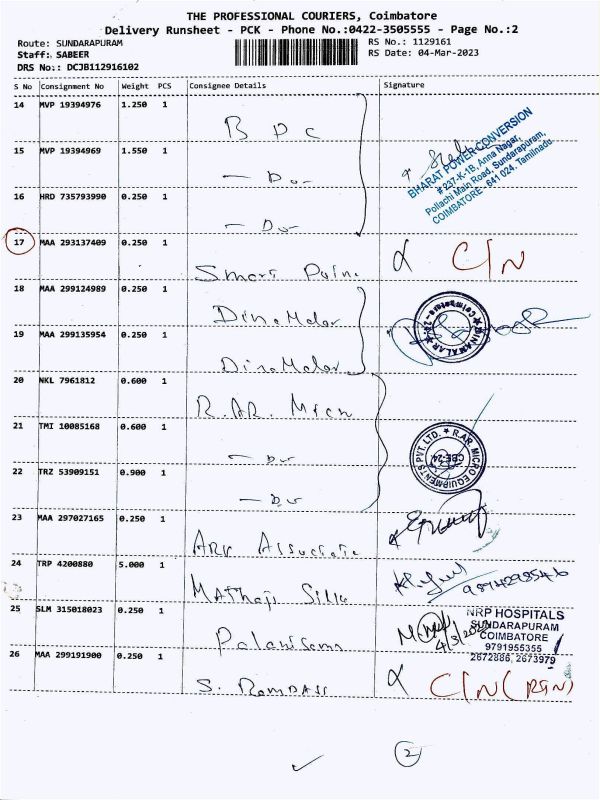 THE PROFESSIONAL COURIERS, Coimbatore
Delivery Runsheet - PCK - Phone No.:0422-3505555 - Page No.:2
Route: SUNDARAPURAM
RS No.: 1129161
Staff: SABEER
RS Date: 04-Mar-2023
DRS No.: DCJB112916102
S No Consignment No Weight PCS Consignee Details Signature
14 MVP 19394976 1.250 1 B P C
15 MVP 19394969 1.550 1 - Do -
BHARAT POWER CONVERSION
# 237-K-1B, Anna Nagar,
Pollachi Main Road, Sundarapuram,
COIMBATORE - 641 024, Tamilnadu.
16 HRD 735793990 0.250 1 - Do -
17 MAA 293137409 0.250 1 Smart C/N
18 MAA 299124989 0.250 1 DinaMalar
19 MAA 299135954 0.250 1 DinaMalar
DINAMALAR ★ Coimbatore
20 NKL 7961812 0.600 1 R.AR. Micro
21 TMI 10085168 0.600 1 - Do -
★ R.AR. MICRO EQUIPMENTS PVT. LTD.
CBE-24
22 TRZ 53909151 0.900 1 - Do -
23 MAA 297027165 0.250 1 Associate
24 TRP 4200880 5.000 1 Mathaji Silks
25 SLM 315018023 0.250 1 Palanisamy 4/3/2023
NRP HOSPITALS
SUNDARAPURAM
COIMBATORE
9791955355
2672886, 2673979
26 MAA 299191900 0.250 1 S. RAMDASS C/N (RTN)
2